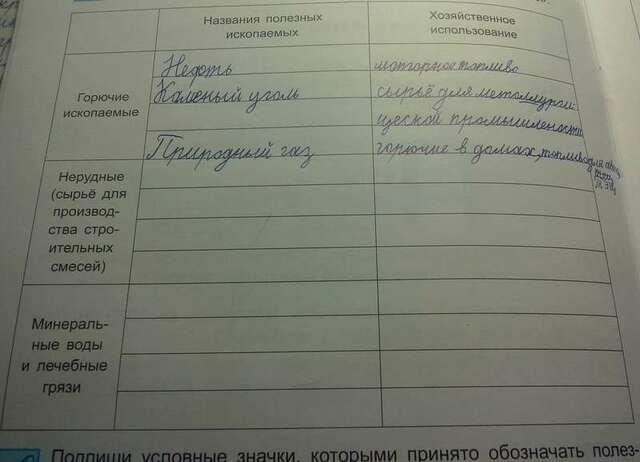 Названия полезных
ископаемых
Хозяйственное
использование
Горючие
ископаемые
Нефть
моторное топливо
Каменный уголь
сырьё для металлурги
ческой промышлености
Природный газ
горючие в домах, топливо для
Нерудные
(сырьё для
производ-
ства стро-
ительных
смесей)
Минераль-
ные воды
и лечебные
грязи
Подпиши условные значки, которыми принято обозначать полез-